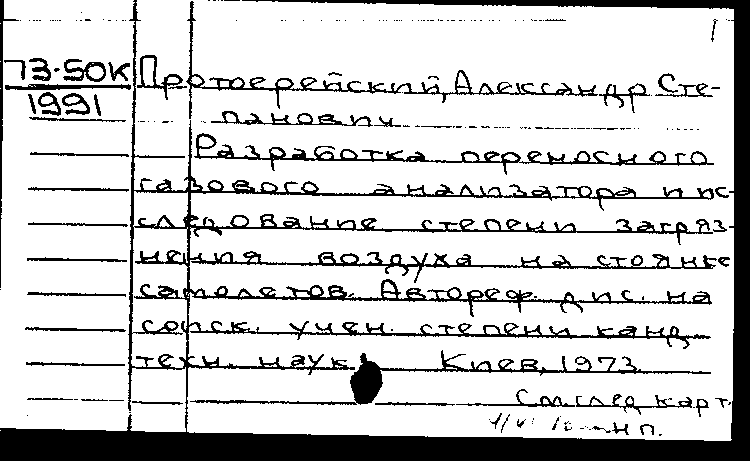 73-50К
1991
Протоерейский, Александр Сте-
панович
Разработка переносного
газового анализатора и ис-
следование степени загряз-
нения воздуха на стоянке
самолетов. Автореф. дис. на
соиск. учен. степени канд.
техн. наук. Киев, 1973.
См. след. карт.